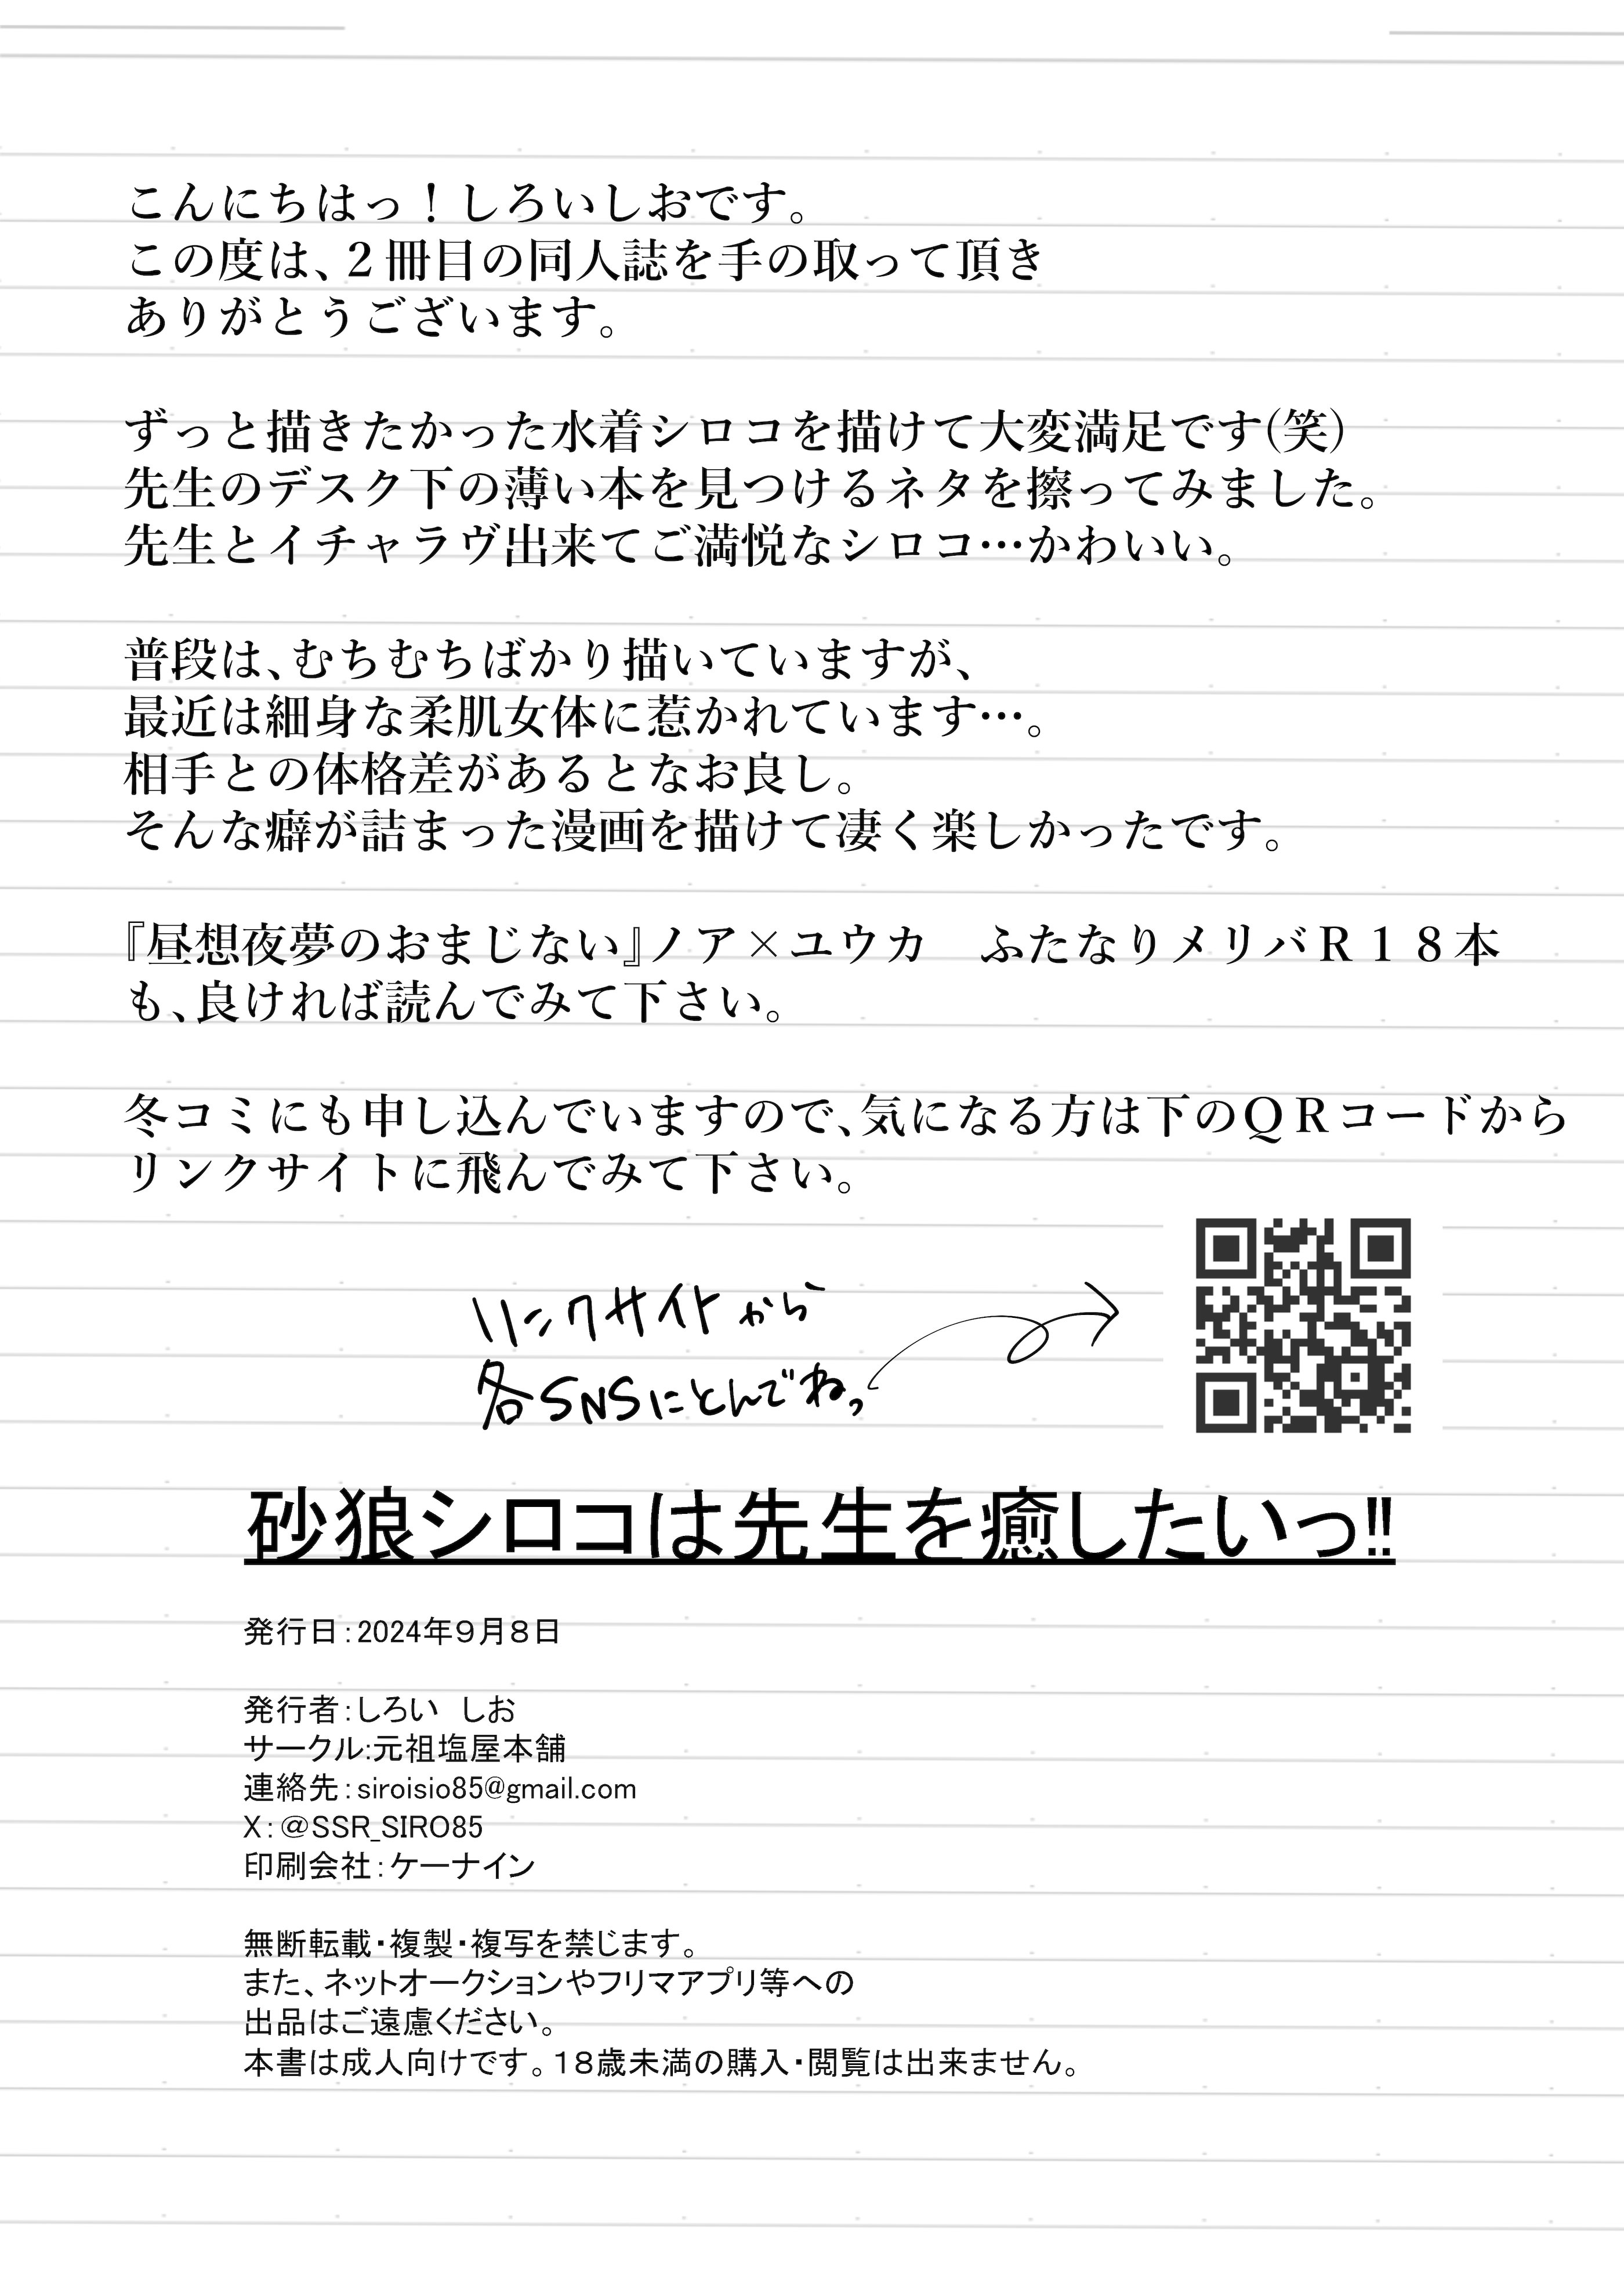 こんにちはっ！しろいしおです。
この度は、２冊目の同人誌を手の取って頂き
ありがとうございます。
ずっと描きたかった水着シロコを描けて大変満足です(笑)
先生のデスク下の薄い本を見つけるネタを擦ってみました。
先生とイチャラヴ出来てご満悦なシロコ…かわいい。
普段は、むちむちばかり描いていますが、
最近は細身な柔肌女体に惹かれています…。
相手との体格差があるとなお良し。
そんな癖が詰まった漫画を描けて凄く楽しかったです。
『昼想夜夢のおまじない』ノア×ユウカ　ふたなりメリバＲ１８本
も、良ければ読んでみて下さい。
冬コミにも申し込んでいますので、気になる方は下のＱＲコードから
リンクサイトに飛んでみて下さい。
リンクサイトから
各SNSにとんでね。
砂狼シロコは先生を癒したいっ!!
発行日：2024年９月８日
発行者：しろい　しお
サークル:元祖塩屋本舗
連絡先：siroisio85@gmail.com
X：@SSR_SIRO85
印刷会社：ケーナイン
無断転載・複製・複写を禁じます。
また、ネットオークションやフリマアプリ等への
出品はご遠慮ください。
本書は成人向けです。１８歳未満の購入・閲覧は出来ません。